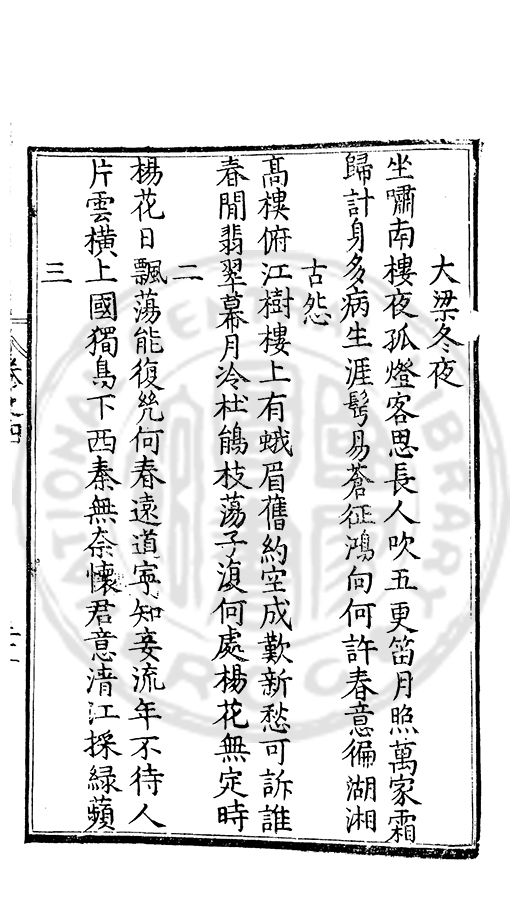 大梁冬夜
坐嘯南樓夜孤燈客思長人吹五更笛月照萬家霜
歸計身多病生涯髩易蒼征鴻向何許春意徧湖湘
古怨
髙樓俯江樹樓上有蛾眉舊約空成歎新愁可訴誰
春閒翡翠幕月冷杜鵑枝蕩子復何處楊花無定時
二
楊花日飄蕩能復幾何春遠道寧知妾流年不待人
片雲橫上國獨鳥下西秦無奈懷君意清江採綠蘋
三
卷之四